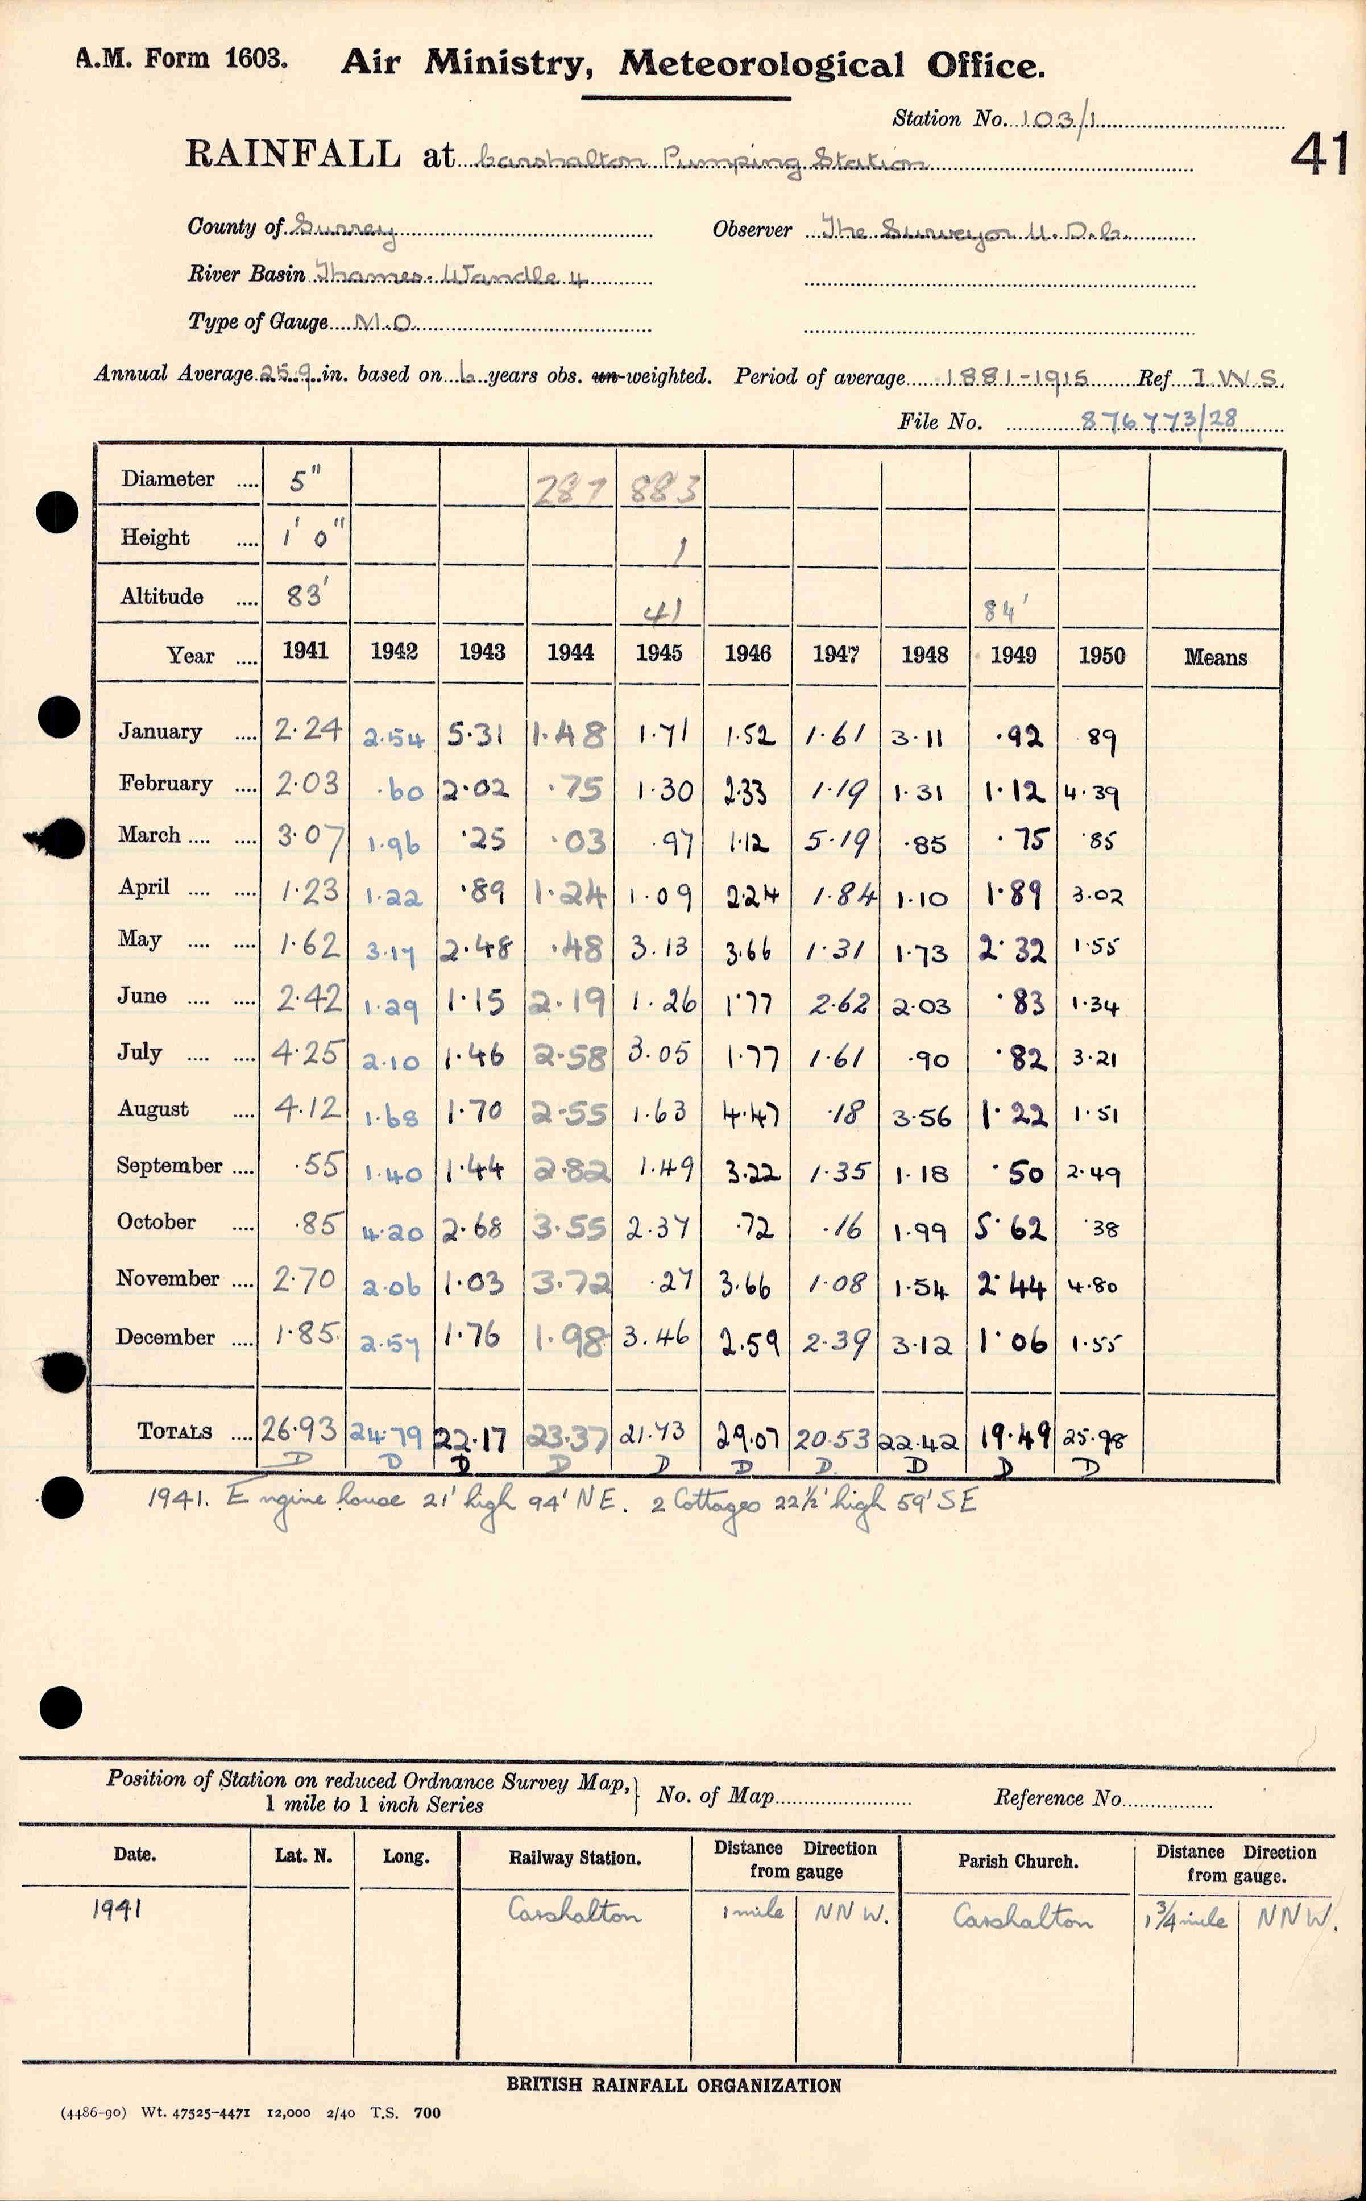 A.M. Form 1603. Air Ministry, Meteorological Office.
Station No. 103/1
41
RAINFALL at Carshalton Pumping Station
County of Surrey Observer The Surveyor U.D.C.
River Basin Thames. Wandle 4
Type of Gauge M.O.
Annual Average 25.9 in. based on 6 years obs. un-weighted. Period of average 1881-1915 Ref I.W.S.
File No. 876773/28
Diameter .... 5" 287 883
Height .... 1' 0" 1
Altitude .... 83' 41 84'
Year .... 1941 1942 1943 1944 1945 1946 1947 1948 1949 1950 Means
January .... 2.24 2.54 5.31 1.48 1.71 1.52 1.61 3.11 .92 .89
February .... 2.03 .60 2.02 .75 1.30 2.33 1.19 1.31 1.12 4.39
March .... .... 3.07 1.96 .25 .03 .97 1.12 5.19 .85 .75 .85
April .... .... 1.23 1.22 .89 1.24 1.09 2.24 1.84 1.10 1.89 3.02
May .... .... 1.62 3.17 2.48 .48 3.13 3.66 1.31 1.73 2.32 1.55
June .... .... 2.42 1.29 1.15 2.19 1.26 1.77 2.62 2.03 .83 1.34
July .... .... 4.25 2.10 1.46 2.58 3.05 1.77 1.61 .90 .82 3.21
August .... 4.12 1.68 1.70 2.55 1.63 4.47 .18 3.56 1.22 1.51
September .... .55 1.40 1.44 2.82 1.49 3.22 1.35 1.18 .50 2.49
October .... .85 4.20 2.68 3.55 2.37 .72 .16 1.99 5.62 .38
November .... 2.70 2.06 1.03 3.72 .27 3.66 1.08 1.54 2.44 4.80
December .... 1.85 2.57 1.76 1.98 3.46 2.59 2.39 3.12 1.06 1.55
TOTALS .... 26.93 24.79 22.17 23.37 21.73 29.07 20.53 22.42 19.49 25.98
D D D D D D D D D D
1941. Engine house 21' high 94' NE. 2 Cottages 22½' high 59' SE
Position of Station on reduced Ordnance Survey Map, 1 mile to 1 inch Series } No. of Map Reference No.
Date. Lat. N. Long. Railway Station. Distance Direction from gauge Parish Church. Distance Direction from gauge.
1941 Carshalton 1 mile NNW. Carshalton 1¾ mile NNW.
BRITISH RAINFALL ORGANIZATION
(4486-90) Wt. 47525-4471 12,000 2/40 T.S. 700